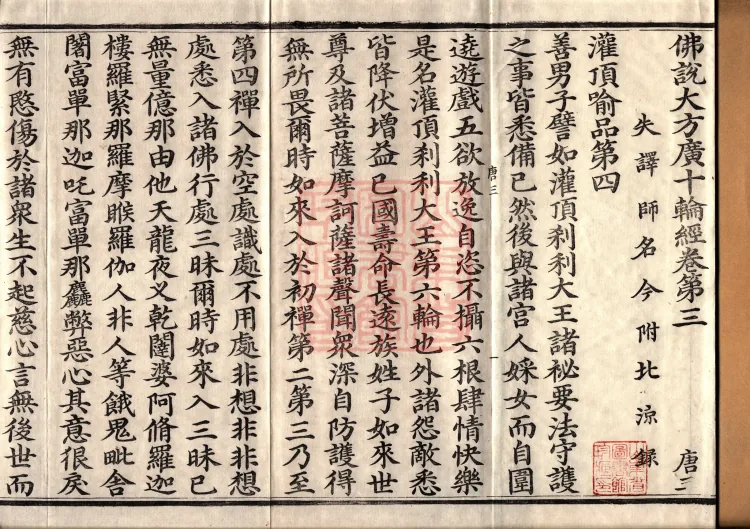 佛說大方廣十輪經卷第三 唐三
失譯師名今附北涼錄
灌頂喻品第四
善男子譬如灌頂刹利大王諸祕要法守護
之事皆悉備已然後與諸宮人婇女而自圍
遶遊戲五欲放逸自恣不攝六根肆情快樂
唐三 一
是名灌頂刹利大王第六輪也外諸怨敵悉
皆降伏增益已國壽命長遠族姓子如來世
尊及諸菩薩摩訶薩諸聲聞衆深自防護得
無所畏爾時如來入於初禪第二第三乃至
第四禪入於空處識處不用處非想非非想
處悉入諸佛行處三昧爾時如來入三昧已
無量億那由他天龍夜义乾闥婆阿脩羅迦
樓羅緊那羅摩睺羅伽人非人等餓鬼毗舍
闍富單那迦吒富單那麤弊惡心其意很戾
無有愍傷於諸衆生不起慈心言無後世而